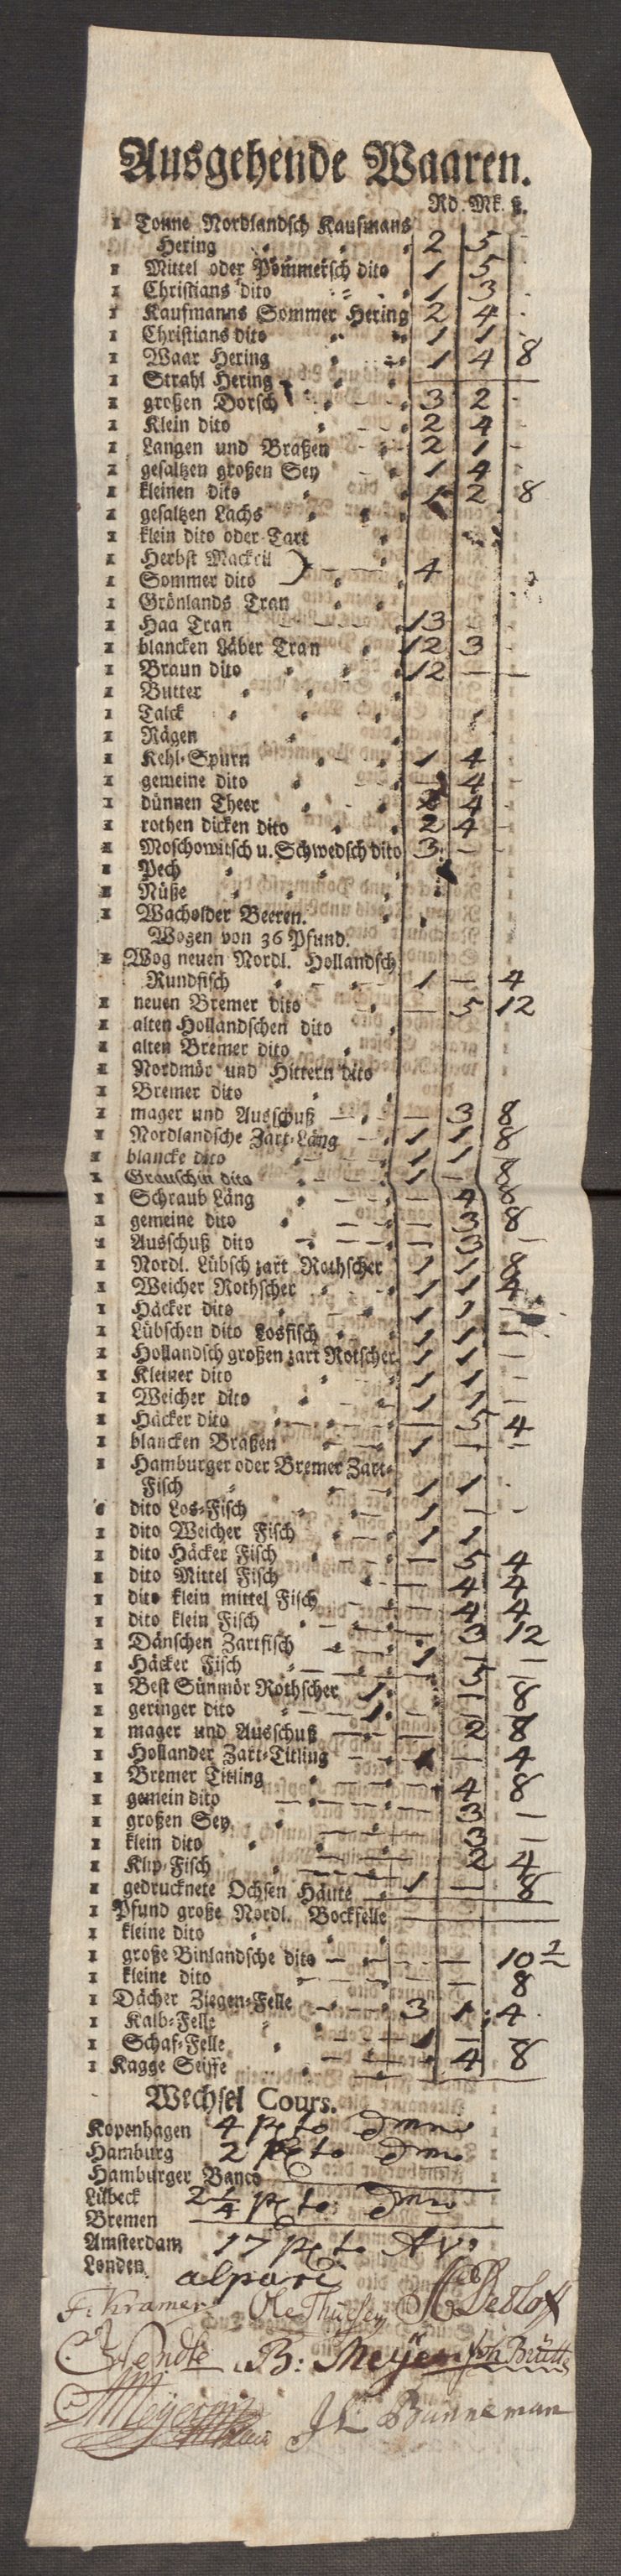 Ausgehende Waaren.
Rd. Mk. ß.
1 Tonne Nordlandsch Kaufmans
Hering 2 5 -
1 Mittel oder Pommersch dito 1 5
1 Christians dito 1 3
1 Kaufmanns Sommer Hering 2 4
1 Christians dito 1 1
1 Waar Hering 1 4 8
1 Strahl Hering
1 großen Dorsch 3 2 -
1 Klein dito 2 4
1 Langen und Braßen 2 1 -
1 gesaltzen großen Sey 1 4
1 kleinen dito 1 2 8
1 gesaltzen Lachs
1 klein dito oder Tart
1 Herbst Mackril
1 Sommer dito 4
1 Grönlands Tran
1 Haa Tran 13
1 blancken Läber Tran 12 3
1 Braun dito 12 — —
1 Butter
1 Talck 1
1 Rägen
1 Kehl-Spurn 1 4
1 gemeine dito — 4 -
1 dünnen Theer 4 -
1 rothen dicken dito 2 4 -
1 Moschowitsch u. Schwedsch dito 3 - -
1 Pech
1 Nüße
1 Wacholder Beeren.
Wogen von 36 Pfund.
1 Wog neuen Nordl. Hollandsch
Rundfisch 1 — 4
1 neuen Bremer dito — 5 12
1 alten Hollandschen dito
1 alten Bremer dito
1 Nordmör und Hittern dito
1 Bremer dito
1 mager und Ausschuß — 3 8
1 Nordlandsche Zart-Läng 1 1 8
1 blancke dito 1 1
1 Grauschin dito 1 — 8
1 Schraub Läng — 4 8
1 gemeine dito — 3 8
1 Ausschuß dito — 3 —
1 Nordl. Lübsch zart Rothscher 1 1 8
1 Weicher Rothscher 1 1 4
1 Häcker dito 1 1 —
1 Lübschen dito Losfisch 1 1 —
1 Hollandsch großen zart Rotscher 1 1 —
1 Kleiner dito 1 1 -
1 Weicher dito 1 1 —
1 Häcker dito — 5 4
1 blancken Braßen 1 — —
1 Hamburger oder Bremer Zart-
Fisch 1 1
dito Los-Fisch 1 — -
1 dito Weicher Fisch 1 1
1 dito Häcker Fisch — 5 4
1 dito Mittel Fisch — 4 4
1 dito klein mittel Fisch — 4 4
1 dito klein Fisch 3 12
1 Dänschen Zartfisch 1 1 —
1 Häcker Fisch 5 —
1 Best Sünmör Rothscher 1 1 8
1 geringer dito 1
1 mager und Ausschuß — 2 8
1 Hollander Zart-Titling — 4
1 Bremer Titling 4 8
1 gemein dito 3 —
1 großen Sey 3 —
1 klein dito 2 4
1 Klip-Fisch
1 gedrucknete Ochsen Häute 1 — 8
1 Pfund große Nordl. Bockfelle
1 kleine dito
1 große Binlandsche dito — — 10 ½
1 kleine dito — 8
1 Dächer Ziegen-Felle 3 1 4
1 Kalb-Felle
1 Schaf-Felle 1 —
1 Kagge Seiffe 4 8
Wechsel Cours.
Kopenhagen 4 pc to
Hamburg 2 pc to
Hamburger Banco
Lübeck 2¼ pc to
Bremen
Amsterdam 17 pc to
Londen alpari
F. Kramer Ole
B: Meyer Joh
J Bünneman